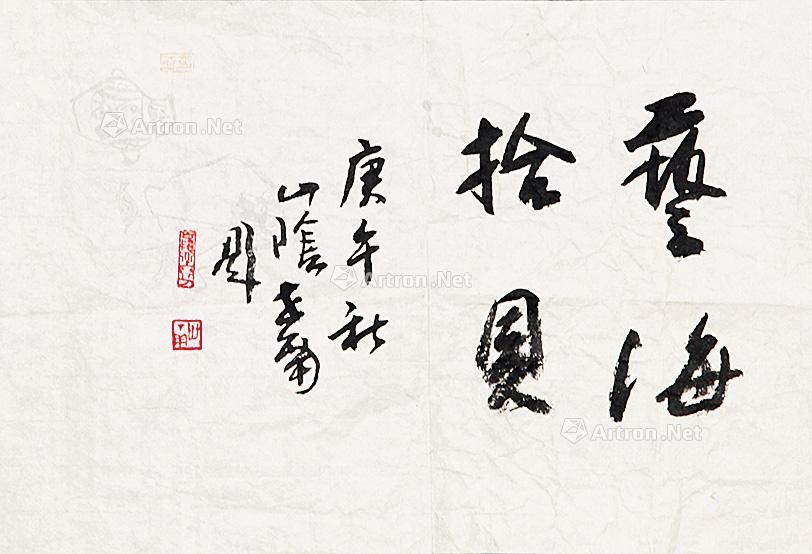 藝海
拾貝
庚午秋
山陰
Artron.Net
Artron.Net
Artron.Net